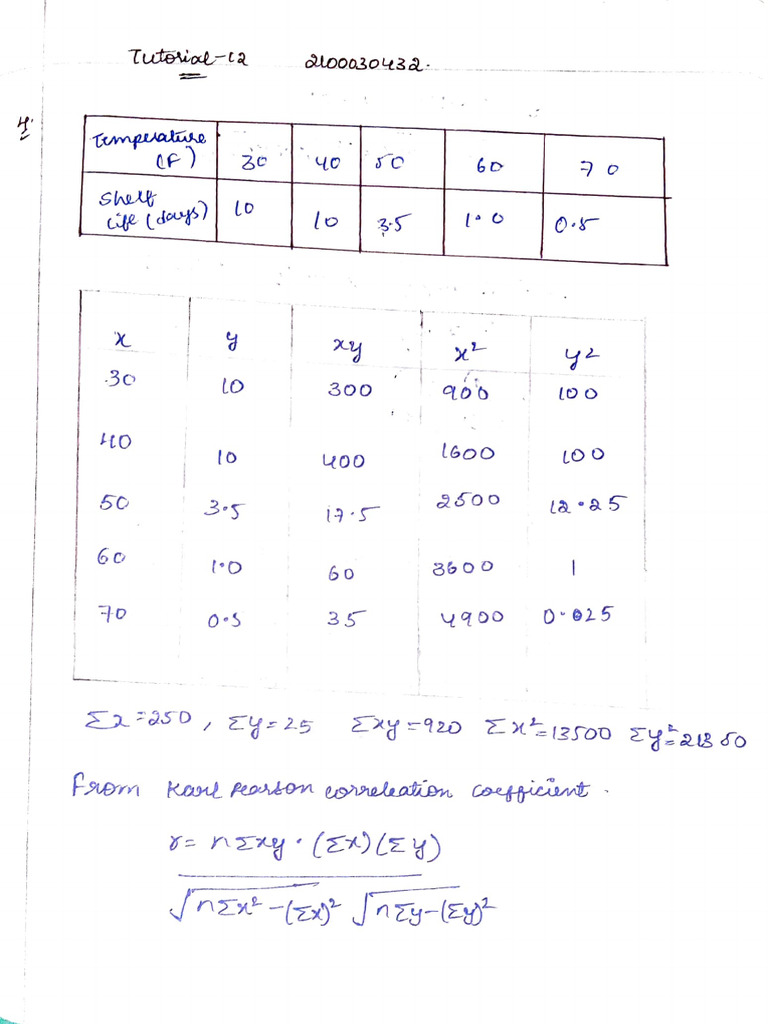 Tutorial-12 2100030432.
4.
Temperature (F) 30 40 50 60 70
Shelf life (days) 10 10 3.5 1.0 0.5
x y xy x² y²
30 10 300 900 100
40 10 400 1600 100
50 3.5 17.5 2500 12.25
60 1.0 60 3600 1
70 0.5 35 4900 0.025
Σx=250, Σy=25 Σxy=920 Σx²=13500 Σy²=21350
From Karl Pearson correleation coefficient.
r= nΣxy · (Σx)(Σy)
√nΣx²-(Σx)² √nΣy-(Σy)²